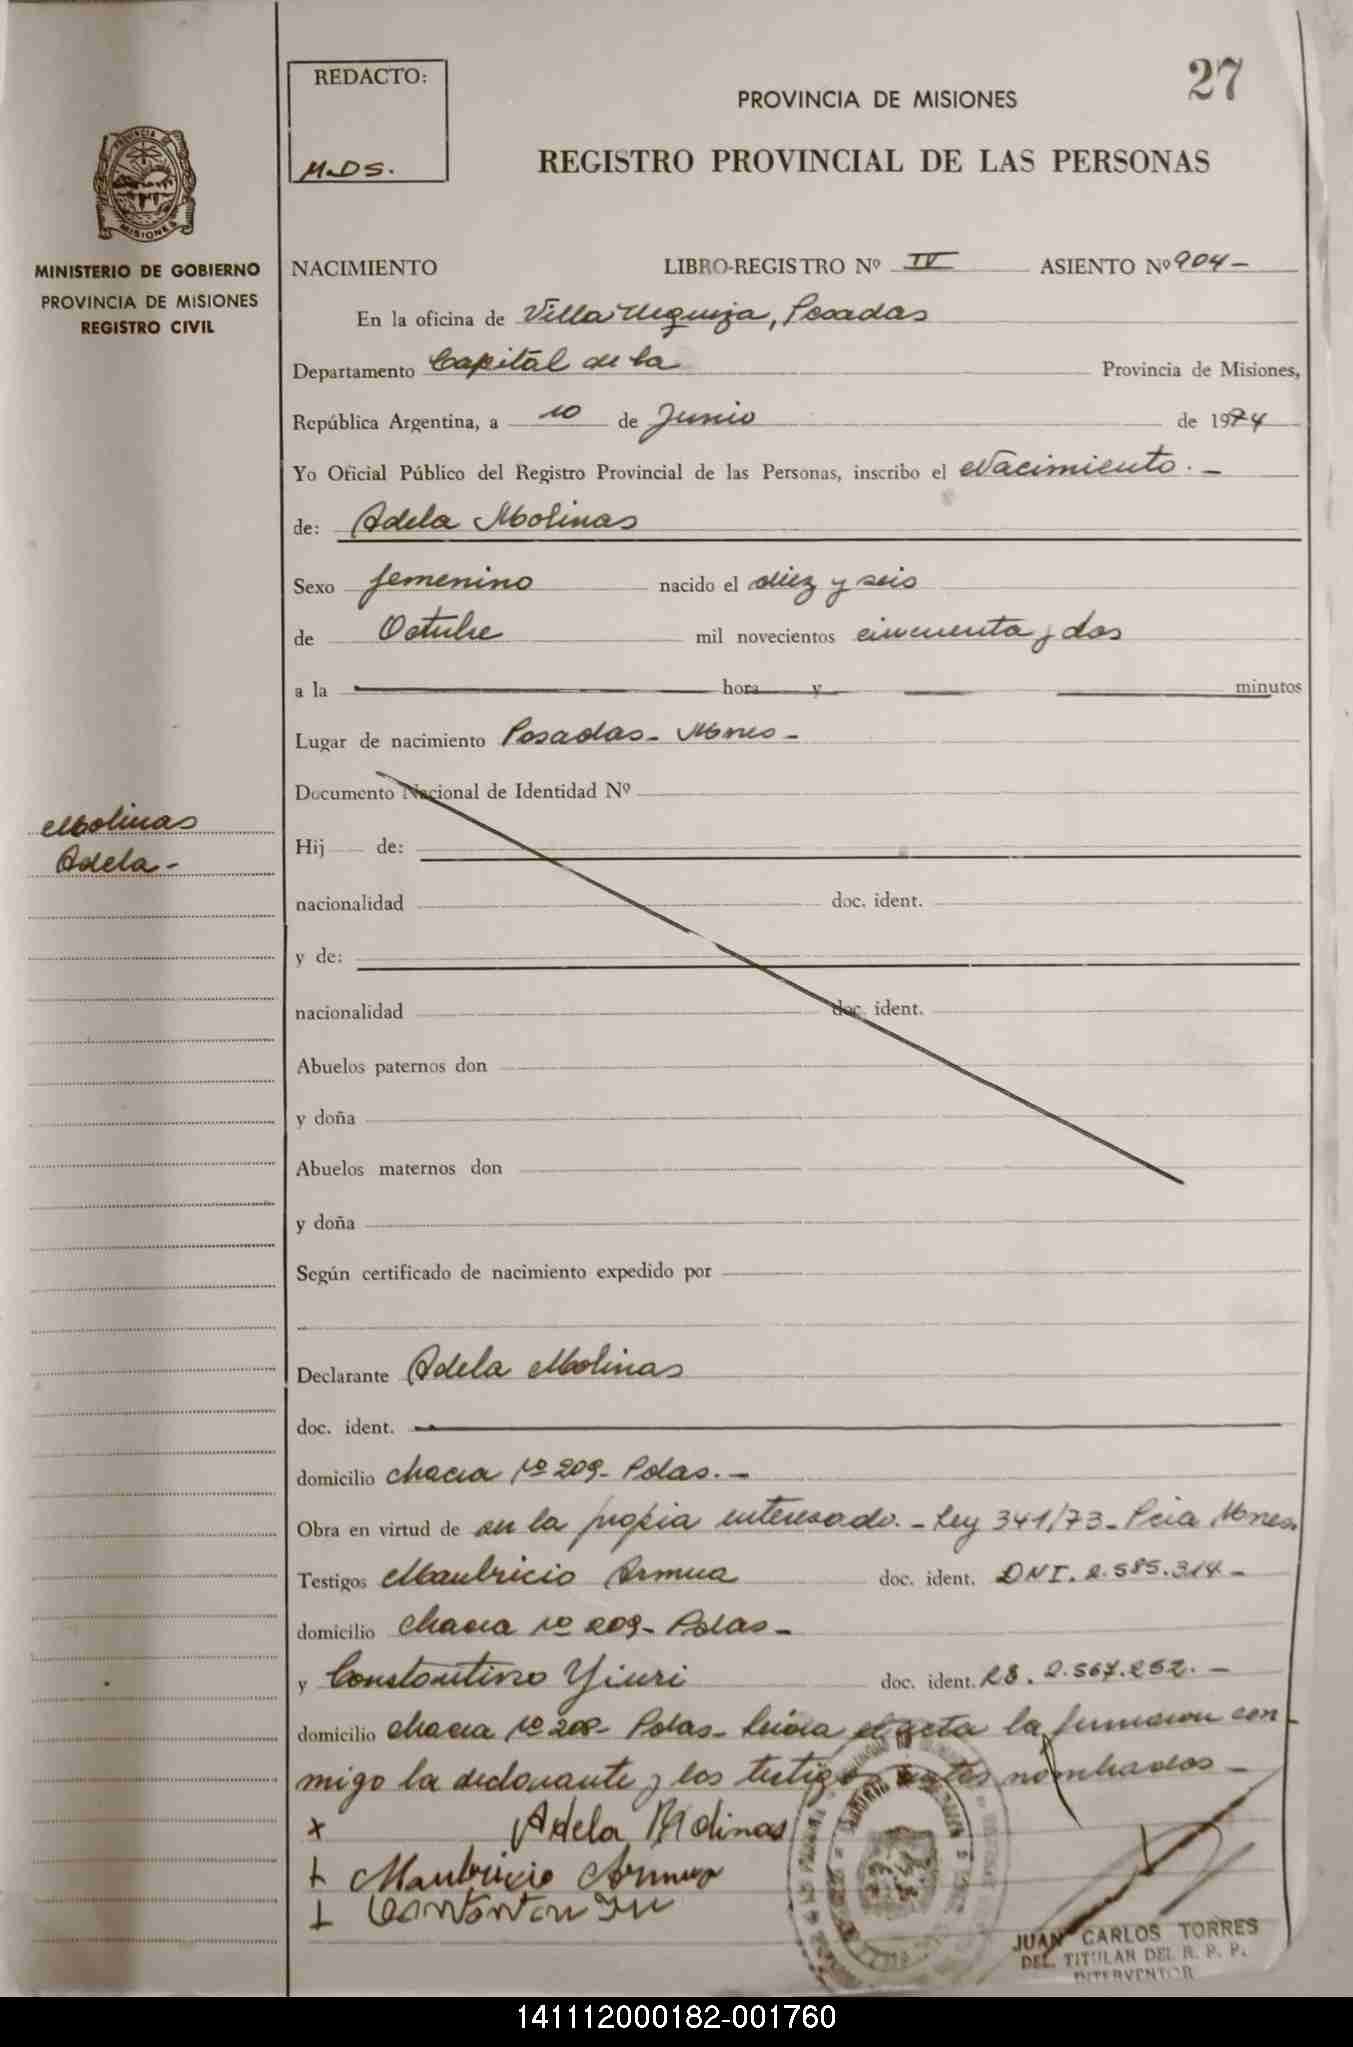 REDACTO:
M.DS.
27
PROVINCIA DE MISIONES
REGISTRO PROVINCIAL DE LAS PERSONAS
PROVINCIA DE
MISIONES
MINISTERIO DE GOBIERNO
PROVINCIA DE MISIONES
REGISTRO CIVIL
NACIMIENTO LIBRO-REGISTRO Nº IV ASIENTO Nº 904-
En la oficina de Villa Urquiza, Posadas
Departamento Capital de la Provincia de Misiones,
República Argentina, a 10 de Junio de 1974
Yo Oficial Público del Registro Provincial de las Personas, inscribo el Nacimiento.-
de: Adela Molinas
Sexo femenino nacido el diez y seis
de Octubre mil novecientos cincuenta y dos
a la hora y minutos
Lugar de nacimiento Posadas- Mnes-
Documento Nacional de Identidad Nº
Molinas
Adela-
Hij de:
nacionalidad doc. ident.
y de:
nacionalidad doc. ident.
Abuelos paternos don
y doña
Abuelos maternos don
y doña
Según certificado de nacimiento expedido por
Declarante Adela Molinas
doc. ident.
domicilio chacra Nº 209- Pdas.-
Obra en virtud de ser la propia interesada.- Ley 341/73- Pcia Mnes.
Testigos Maubricio Armua doc. ident. DNI. 2.585.314-
domicilio chacra Nº 209- Pdas-
y Constantino Yiuri doc. ident. 2.567.252.-
domicilio chacra Nº 208- Pdas- leída el acta la firmaron con
migo la declarante y los testigos antes nombrados-
x Adela Molinas
Maubricio Armua
JUAN CARLOS TORRES
DEL. TITULAR DEL R. P. P.
INTERVENTOR
141112000182-001760